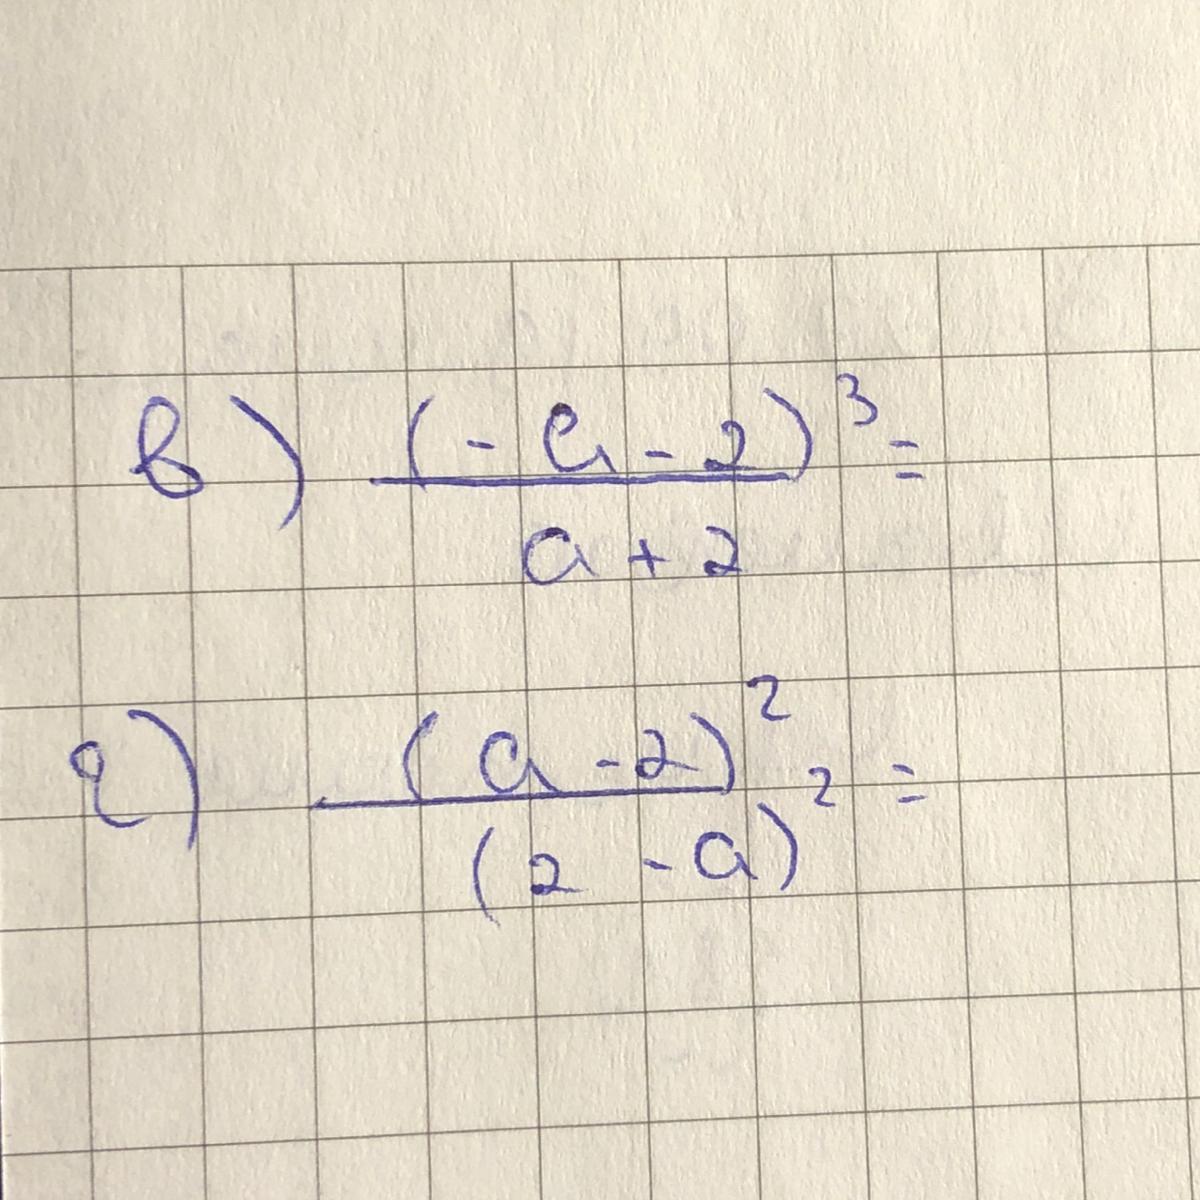 в) (-a-2)³ =
a+2
г) (a-2)² =
(2-a)²